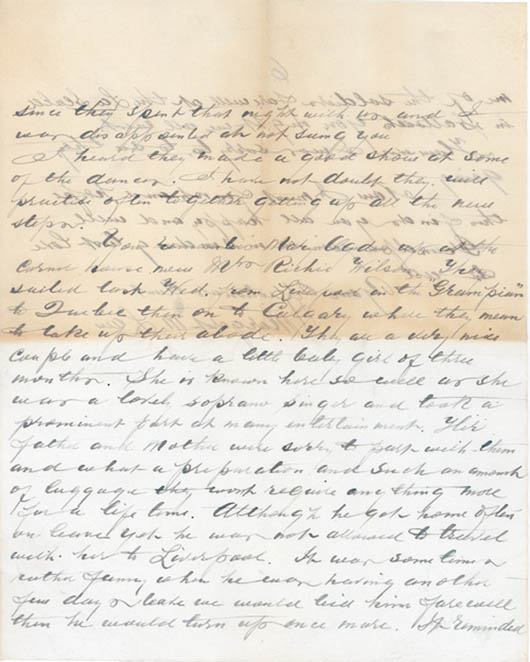 since they spent that night with us and I
was disappointed at not seing you
I heard they made a good show at some
of the dances. I have not doubt they will
practise often together getting up all the new
steps.
You remember Mai Dods up at the
corner house now Mrs Richie Wilson. They
sailed last Wed. from Liverpool on the "Grampian"
to Quebec then on to Calgary where they mean
to take up their abode. They are a very nice
couple and have a little baby girl of three
months. She is known here so well as she
was a lovely soprano singer and took a
prominent part at many entertainment. Her
father and Mother were sorry to part with them
and what a preparation and such an amount
of luggage they wont require anything more
for a life time. Although he got home often
on leave yet he was not allowed to travel
with her to Liverpool. It was sometimes
rather funny when he was having another
few days leave we would bid him farewell
then he would turn up once more. It reminded